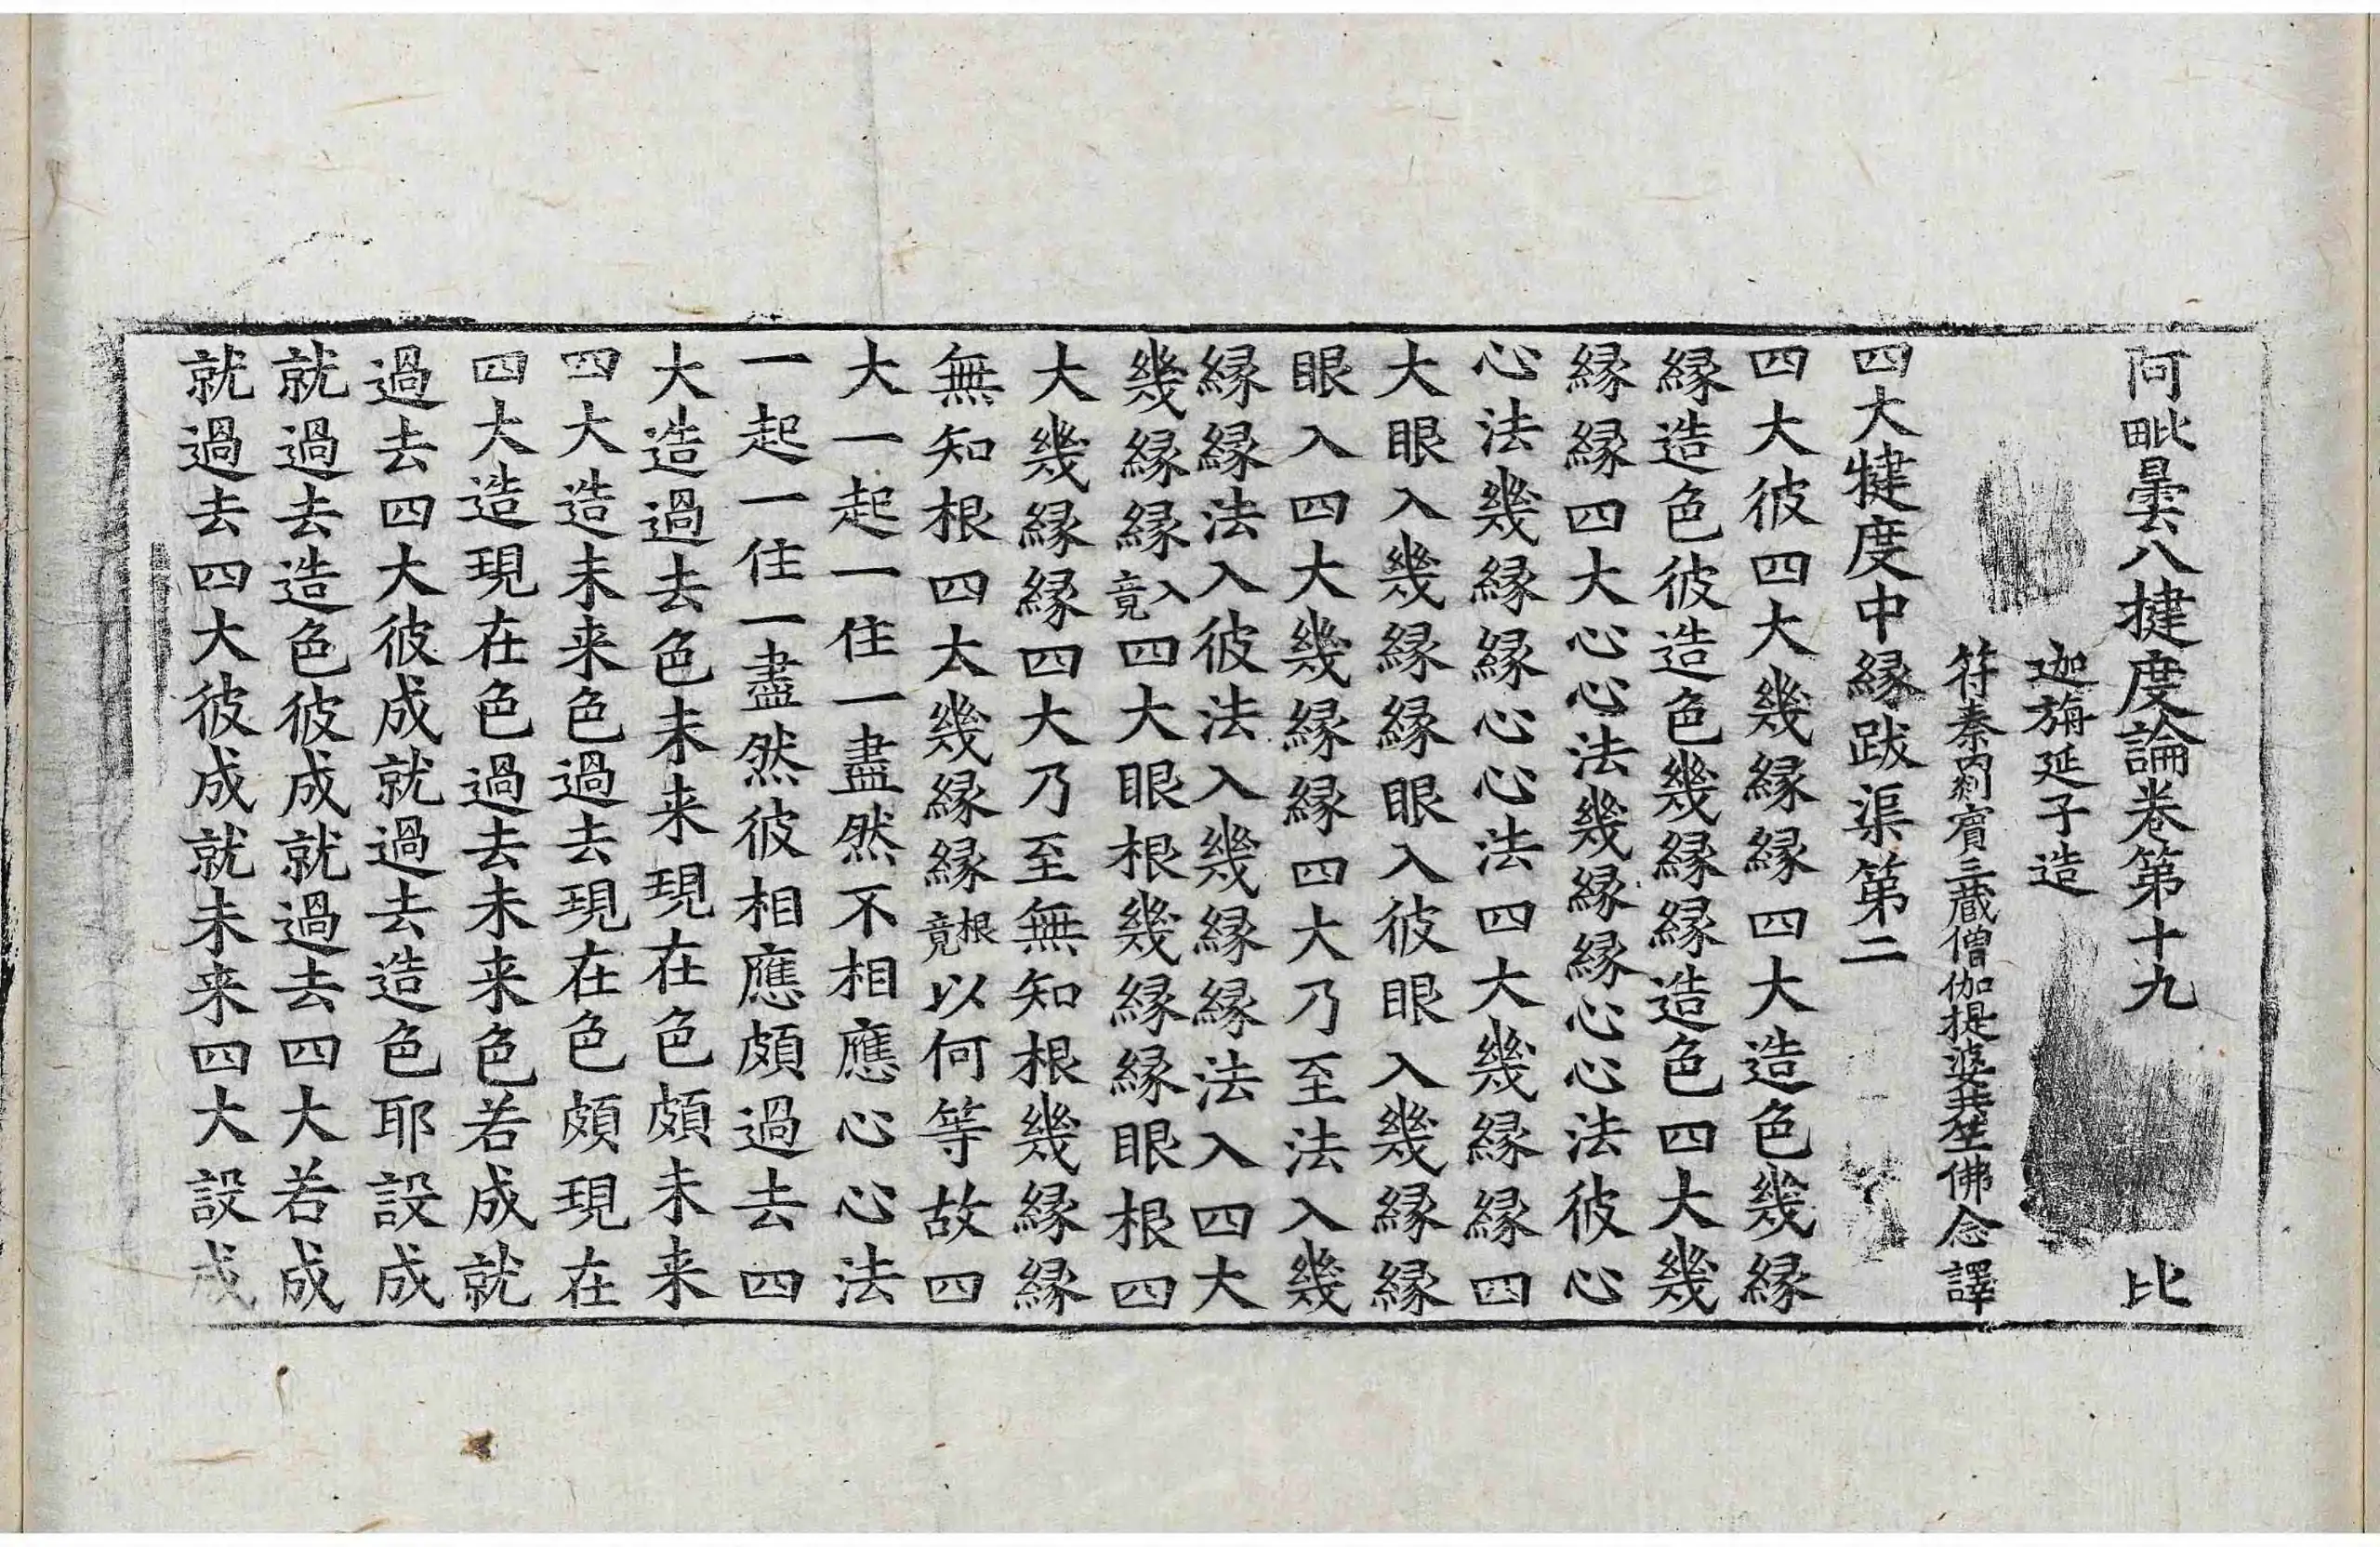 阿毗曇八揵度論卷第十九 比
迦旃延子造
符秦罽賓三藏僧伽提婆共竺佛念譯
四大犍度中緣跋渠第二
四大彼四大幾緣緣四大造色幾緣
緣造色彼造色幾緣緣造色四大幾
緣緣四大心心法幾緣緣心心法彼心
心法幾緣緣心心法四大幾緣緣四
大眼入幾緣緣眼入彼眼入幾緣緣
眼入四大幾緣緣四大乃至法入幾
緣緣法入彼法入幾緣緣法入四大
幾緣緣入竟四大眼根幾緣緣眼根四
大幾緣緣四大乃至無知根幾緣緣
無知根四大幾緣緣根竟以何等故四
大一起一住一盡然不相應心心法
一起一住一盡然彼相應頗過去四
大造過去色未来現在色頗未来
四大造未来色過去現在色頗現在
四大造現在色過去未来色若成就
過去四大彼成就過去造色耶設成
就過去造色彼成就過去四大若成
就過去四大彼成就未来四大設成